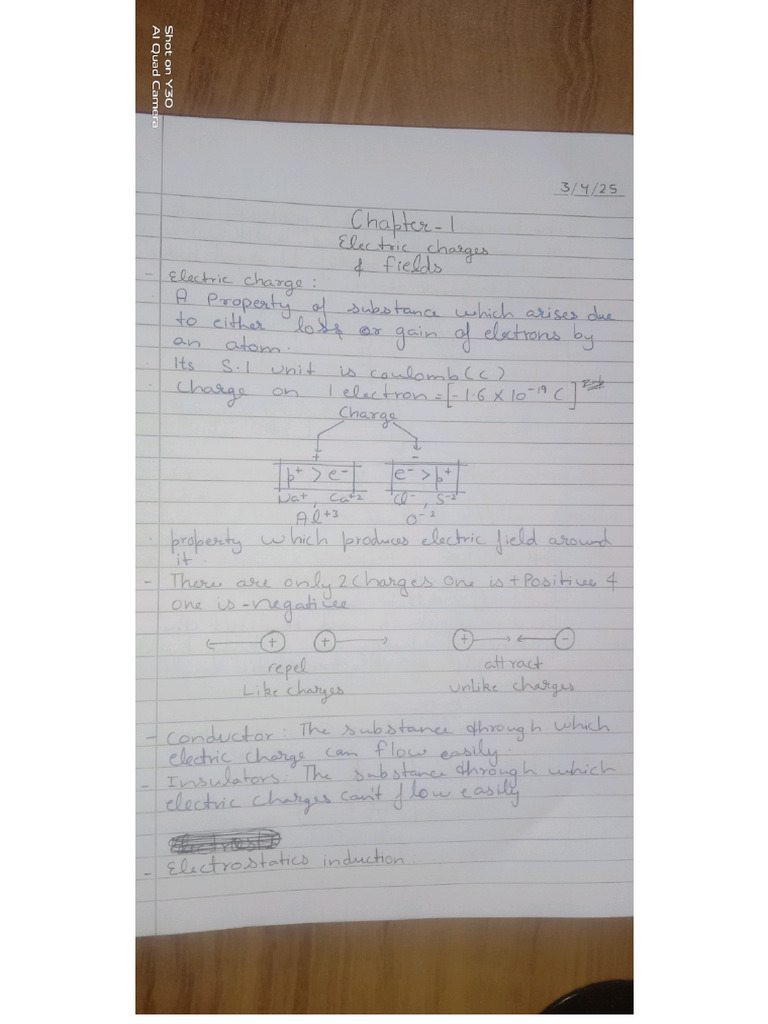 Shot on Y30
AI Quad Camera
3/4/25
Chapter-1
Electric charges
& fields
- Electric charge :
A Property of substance which arises due
to either loss or gain of electrons by
an atom.
Its S.I unit is coulomb (c)
Charge on 1 electron = [-1.6 × 10⁻¹⁹ C]
Charge
+ -
p⁺ > e⁻ e⁻ > p⁺
Na⁺, Ca⁺² Cl⁻, S⁻²
Al⁺³ O⁻²
property which produces electric field around
it.
- There are only 2 charges one is + Positive &
one is - negative
+ + + -
repel attract
Like charges unlike charges
- Conductor : The substance through which
electric charge can flow easily.
- Insulators : The substance through which
electric charges can't flow easily
- Electrostatics induction